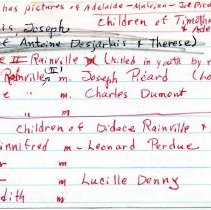 has pictures of Adelaide - Malvina - Joe Picard
Children of Timothe
& Ade
is Joseph
of Antoine Desjarlais & Therese)
e " Rainville (killed in youth by
Rainville (II) m. Joseph Picard (
e " m. Charles Dumont
" m
Children of Didace Rainville &
innifred m - Leonard Perdue
" m
" m Lucille Denny
dith " m